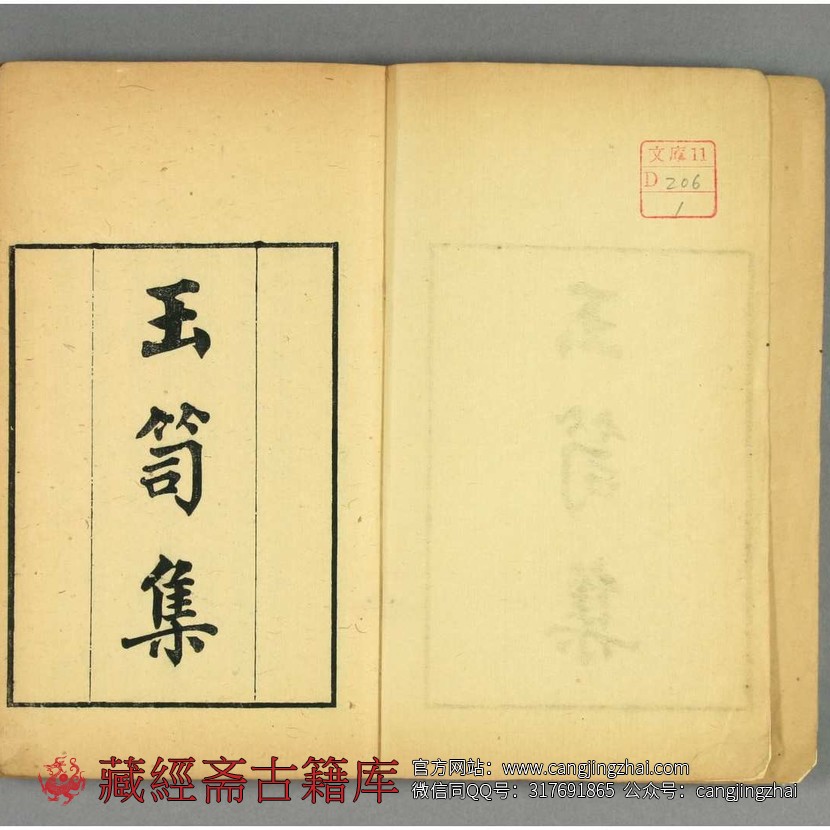 玉笥集
文庫11
D 206
1
藏經斋古籍库
官方网站：www.cangjingzhai.com
微信同QQ号：317691865 公众号：cangjingzhai